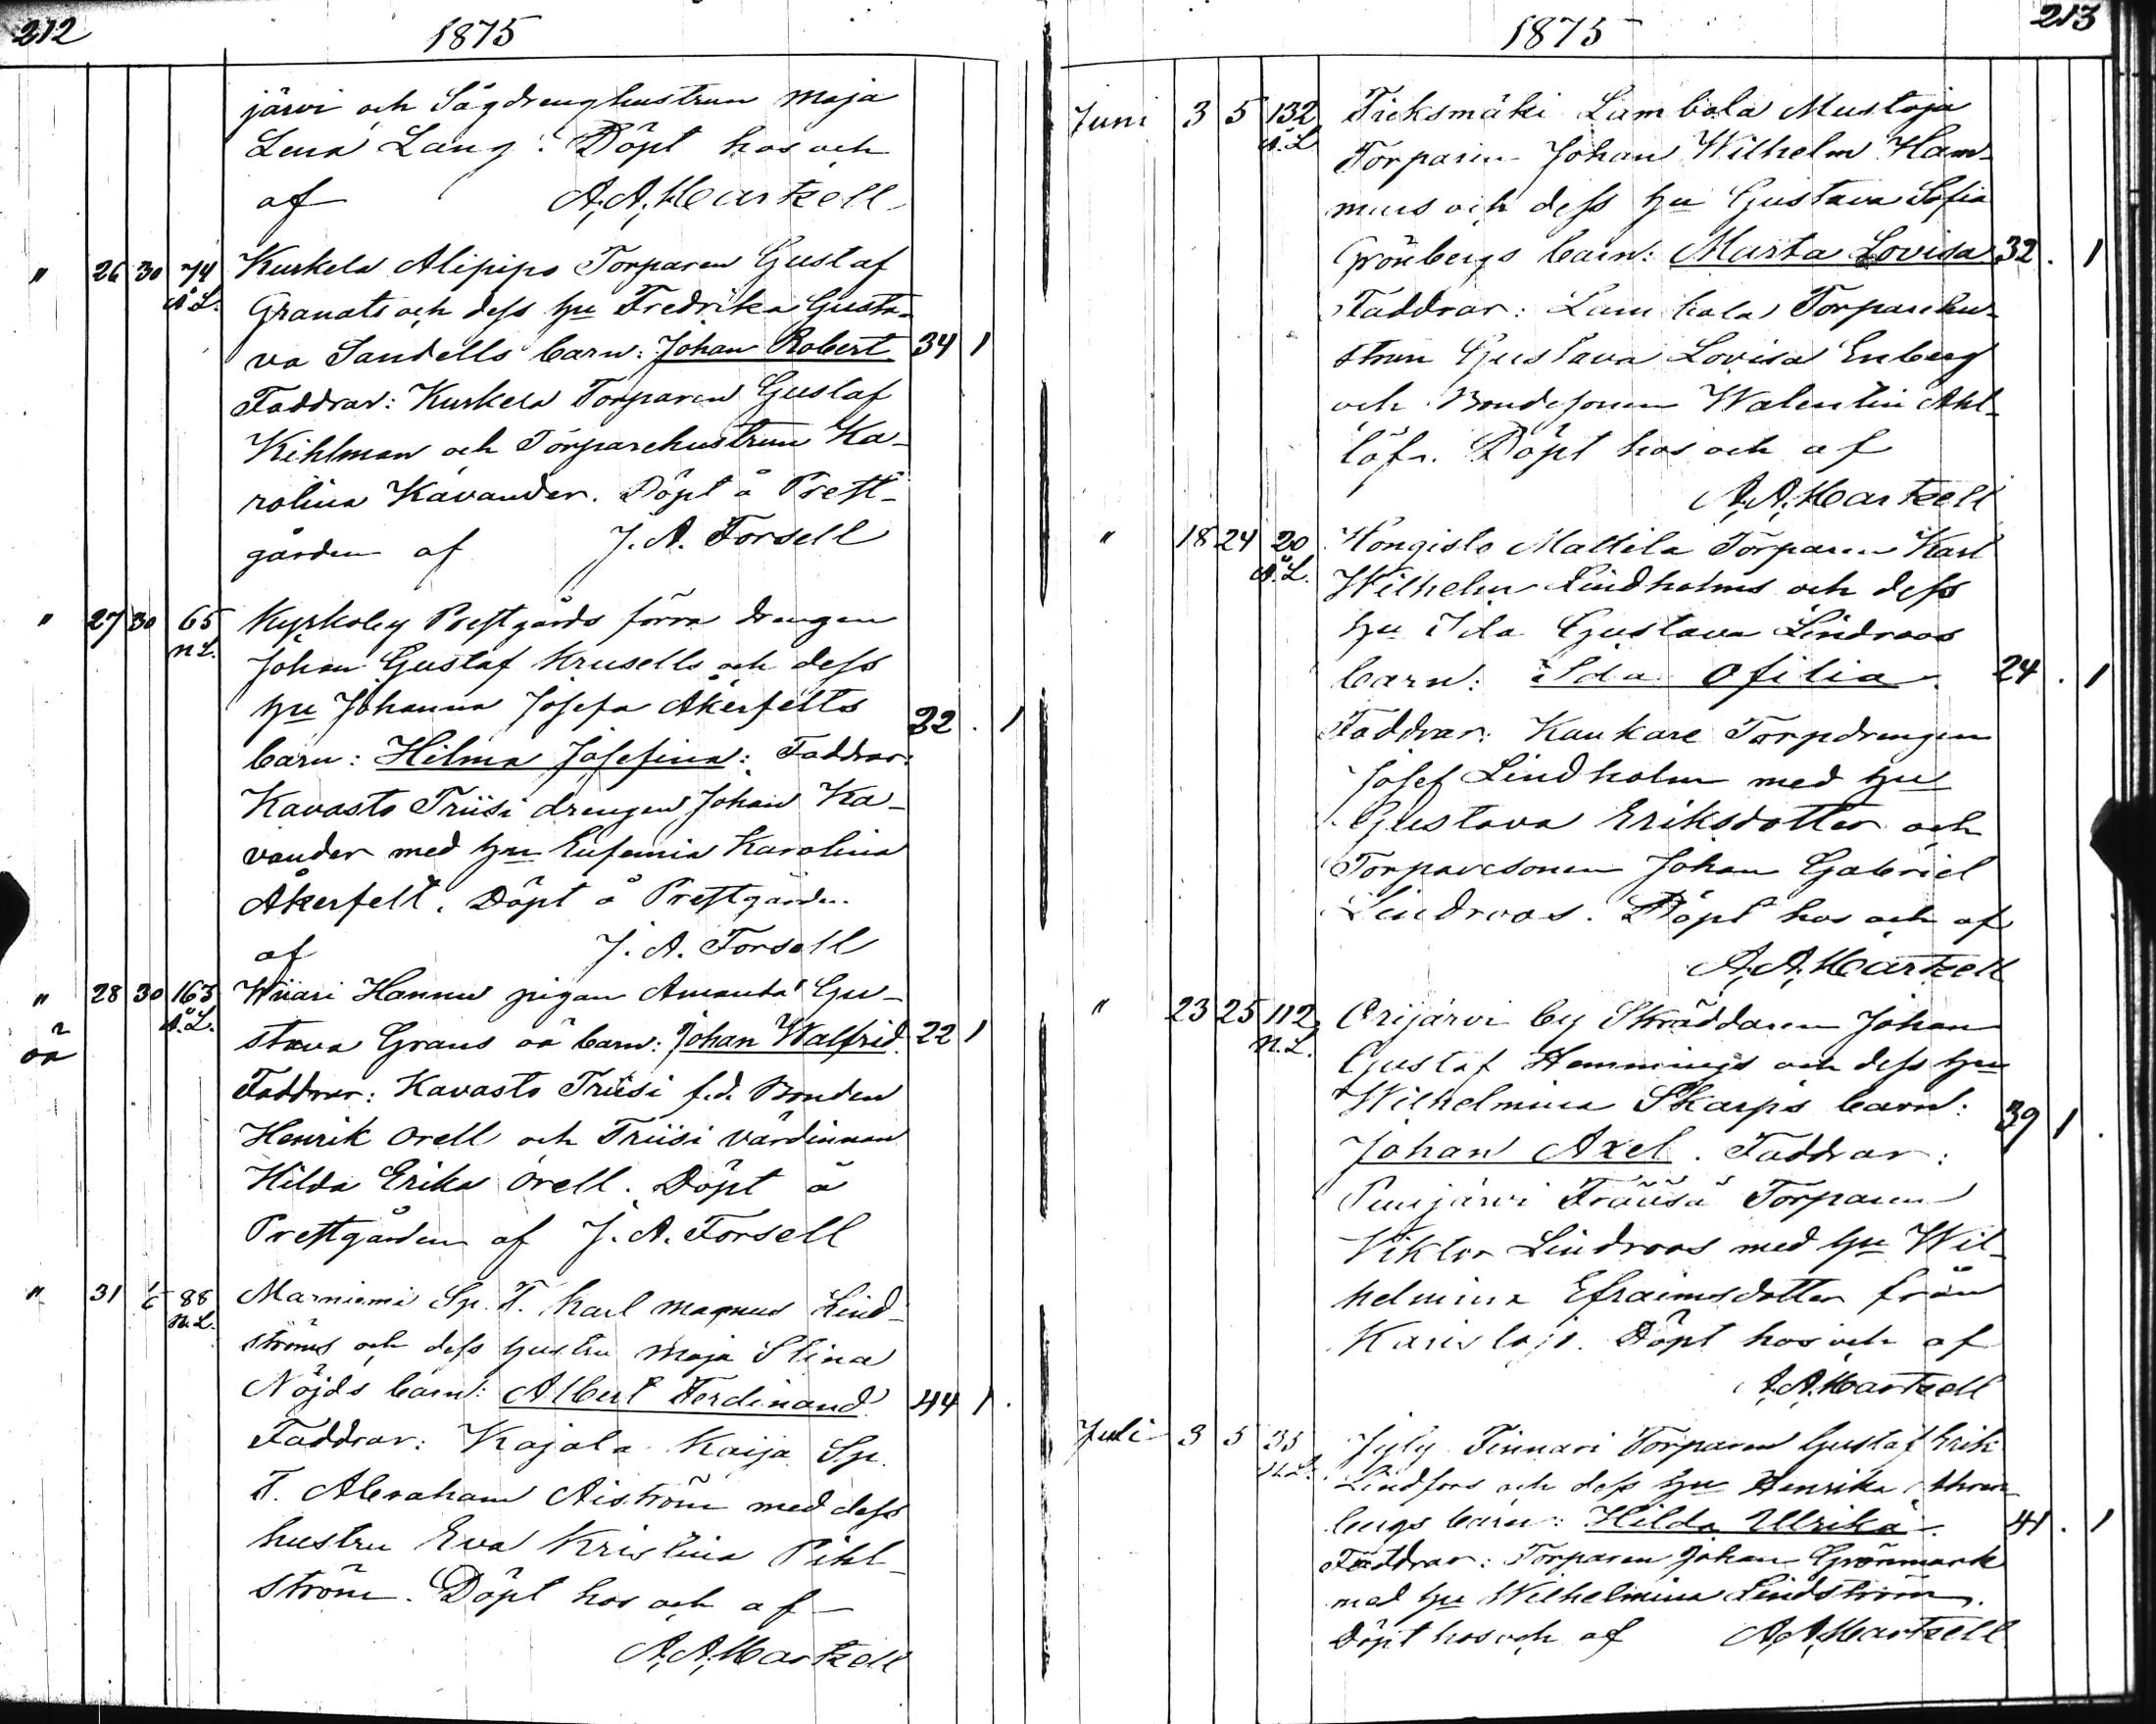 212
1875
järvi och Sågdrenghustrun Maja
Lena Lang: Döpt hos och
af A. A. Martzell
" 26 30 74 Kuskela Alipipo Torparen Gustaf
Å.L. Granats och dess hu Fredrika Gusta-
va Sandells barn: Johan Robert 34 1
Faddrar: Kuskela Torparen Gustaf
Kihlman och Torparehustrun Ka-
rolina Kavander. Döpt å Prest-
gården af J. A. Forsell
" 27 30 65 Kyrkoby Prestgårds förra drengen
N.L. Johan Gustaf Krusells och dess
hu Johanna Josefa Åkerfelts 22 . 1
barn: Hilma Josefina: Faddrar:
Kavasto Triisi drengen Johan Ka-
vander med hu Eufemia Karolina
Åkerfelt. Döpt å Prestgården
af J. A. Forsell
" 28 30 163 Wiiari Hannu pigan Amanda Gu-
oä Å.L. stava Grans oä barn: Johan Walfrid. 22 1
Faddrar: Kavasto Triisi f.d. Bonden
Henrik Orell och Triisi värdinnan
Hilda Erika Orell. Döpt å
Prestgården af J. A. Forsell
" 31 1/6 88 Marniemi Sp. T. Karl Magnus Lind-
N.L. ströms och dess hustru Maja Stina
Nöjds barn: Albert Ferdinand 44 1 .
Faddrar: Kajala Kaija Sp.
T. Abraham Aiström med dess
hustru Eva Kristina Pihl-
ström. Döpt hos och af
A. A. Martzell
213
1875
Juni 3 5 132 Ficksmäki Lambola Mustoja
Å.L. Torparen Johan Wilhelm Ham-
mus och dess hu Gustava Sofia
Grönbergs barn: Marta Lovisa 32 . 1
Faddrar: Lambola Torparehu-
strun Gustava Lovisa Enberg
och Bondesonen Walentin Ahl-
löf. Döpt hos och af
A. A. Martzell
" 18 24 20 Hongisto Mattila Torparen Karl
Å.L. Wilhelm Lindholms och dess
hu Ida Gustava Lindroos
barn: Ida Ofilia. 24 . 1
Faddrar: Kaukare Torpdrengen
Josef Lindholm med hu
Gustava Eriksdotter och
Torparesonen Johan Gabriel
Lindroos. Döpt hos och af
A. A. Martzell
" 23 25 112 Orijärvi by Skräddaren Johan
N.L. Gustaf Hemmings och dess hu
Wilhelmina Skarps barn: 39 1 .
Johan Axel. Faddrar:
Puujärvi Torparen
Viktor Lindroos med hu Wil-
helmina Efraimsdotter från
Karislojo. Döpt hos och af
A. A. Martzell
Juli 3 5 35 Jyly Finnari Torparen Gustaf Erik
N.L. Lindfors och dess hu Henrika
bergs barn: Hilda Ulrika. 41 . 1
Faddrar: Torparen Johan Grönmark
med hu Wilhelmina Lindström.
Döpt hos och af A. A. Martzell